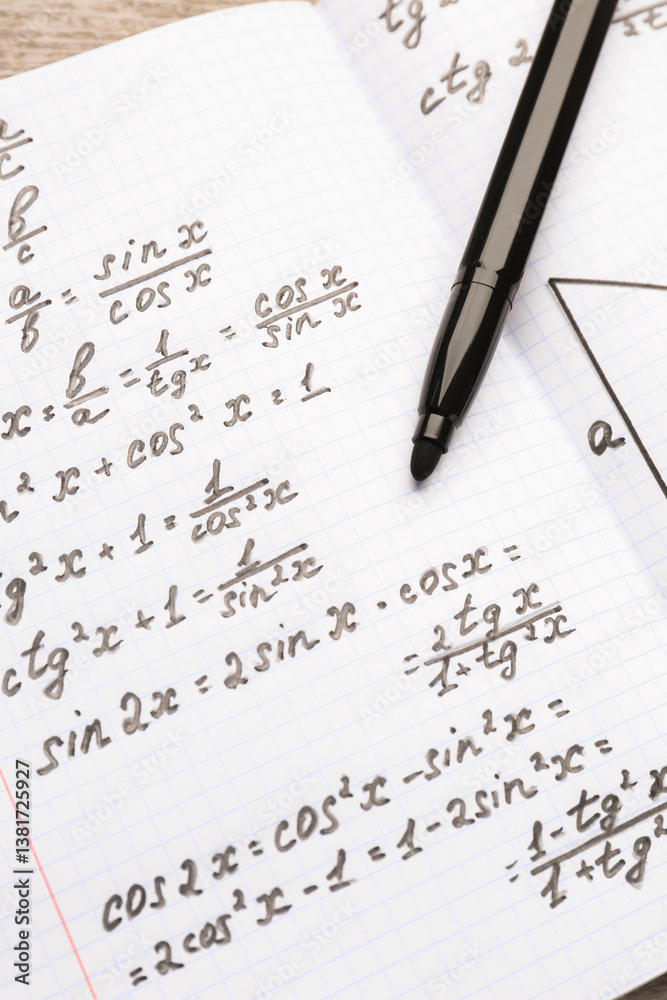 a/c
b/c
a/b = sin x/cos x
x = b/a = 1/tgx = cos x/sin x
² x + cos² x = 1
tg² x + 1 = 1/cos² x
ctg² x + 1 = 1/sin² x
sin 2x = 2 sin x · cos x =
= 2tg x/1 + tg² x
cos 2x = cos² x - sin² x =
= 2cos² x - 1 = 1 - 2sin² x =
= 1 - tg² x/1 + tg²
tg²
ctg²
a
Adobe Stock | #1381725927